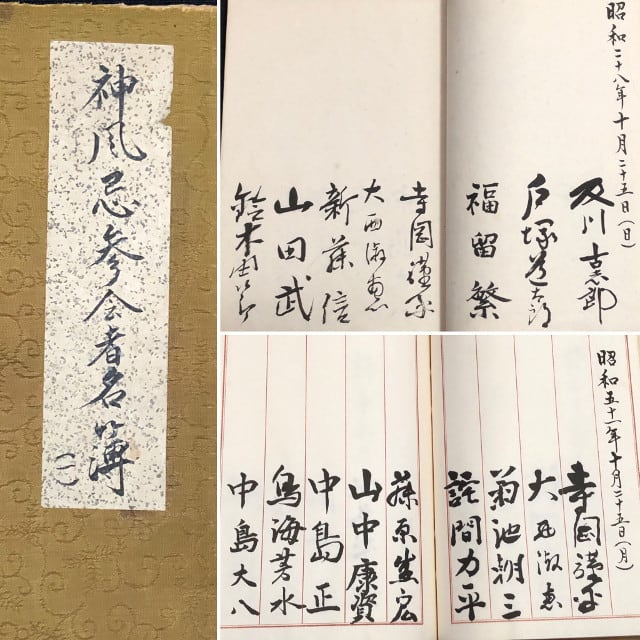 神風忌参会者名簿
(一)
昭和二十八年十月二十五日(日)
及川古志郎
戸塚道太郎
福留繁
寺岡謹平
大西淑恵
新藤信
山田武
鈴木
昭和五十一年十月二十五日(月)
寺岡謹平
大西淑恵
菊池朝三
詫間力平
藤原
山中康資
中島正
鳥海芳水
中島大八